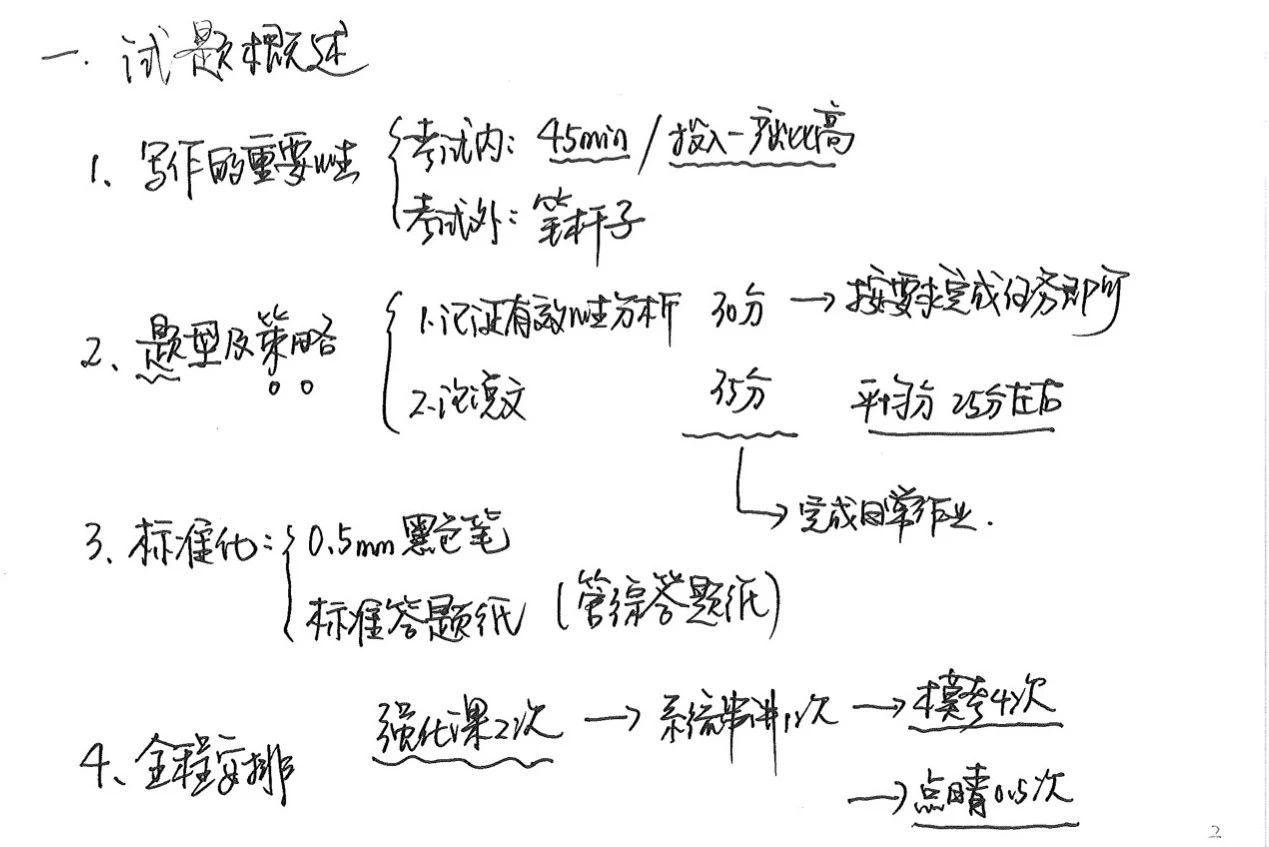 一. 试题概述
1、写作的重要性 { 考试内: 45min / 投入-产出比高
考试外: 笔杆子
2、题型及策略 { 1.论证有效性分析 30分 → 按要求完成任务即可
2.论说文 35分 平均分 25分左右
→ 完成日常作业.
3、标准化: { 0.5mm 黑色笔
标准答题纸 (管综答题纸)
4、全程安排 强化课2次 → 系统串讲1次 → 模考4次
→ 点睛0.5次
2